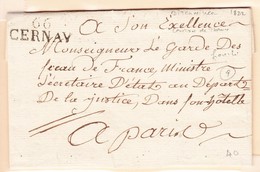 66
CERNAY
A Son Exellence
Monseigneur Le Garde Des
Sceau de France, Ministre
Secrétaire D'Etat au Départ
De la justice, Dans son hôtelle
A paris
40